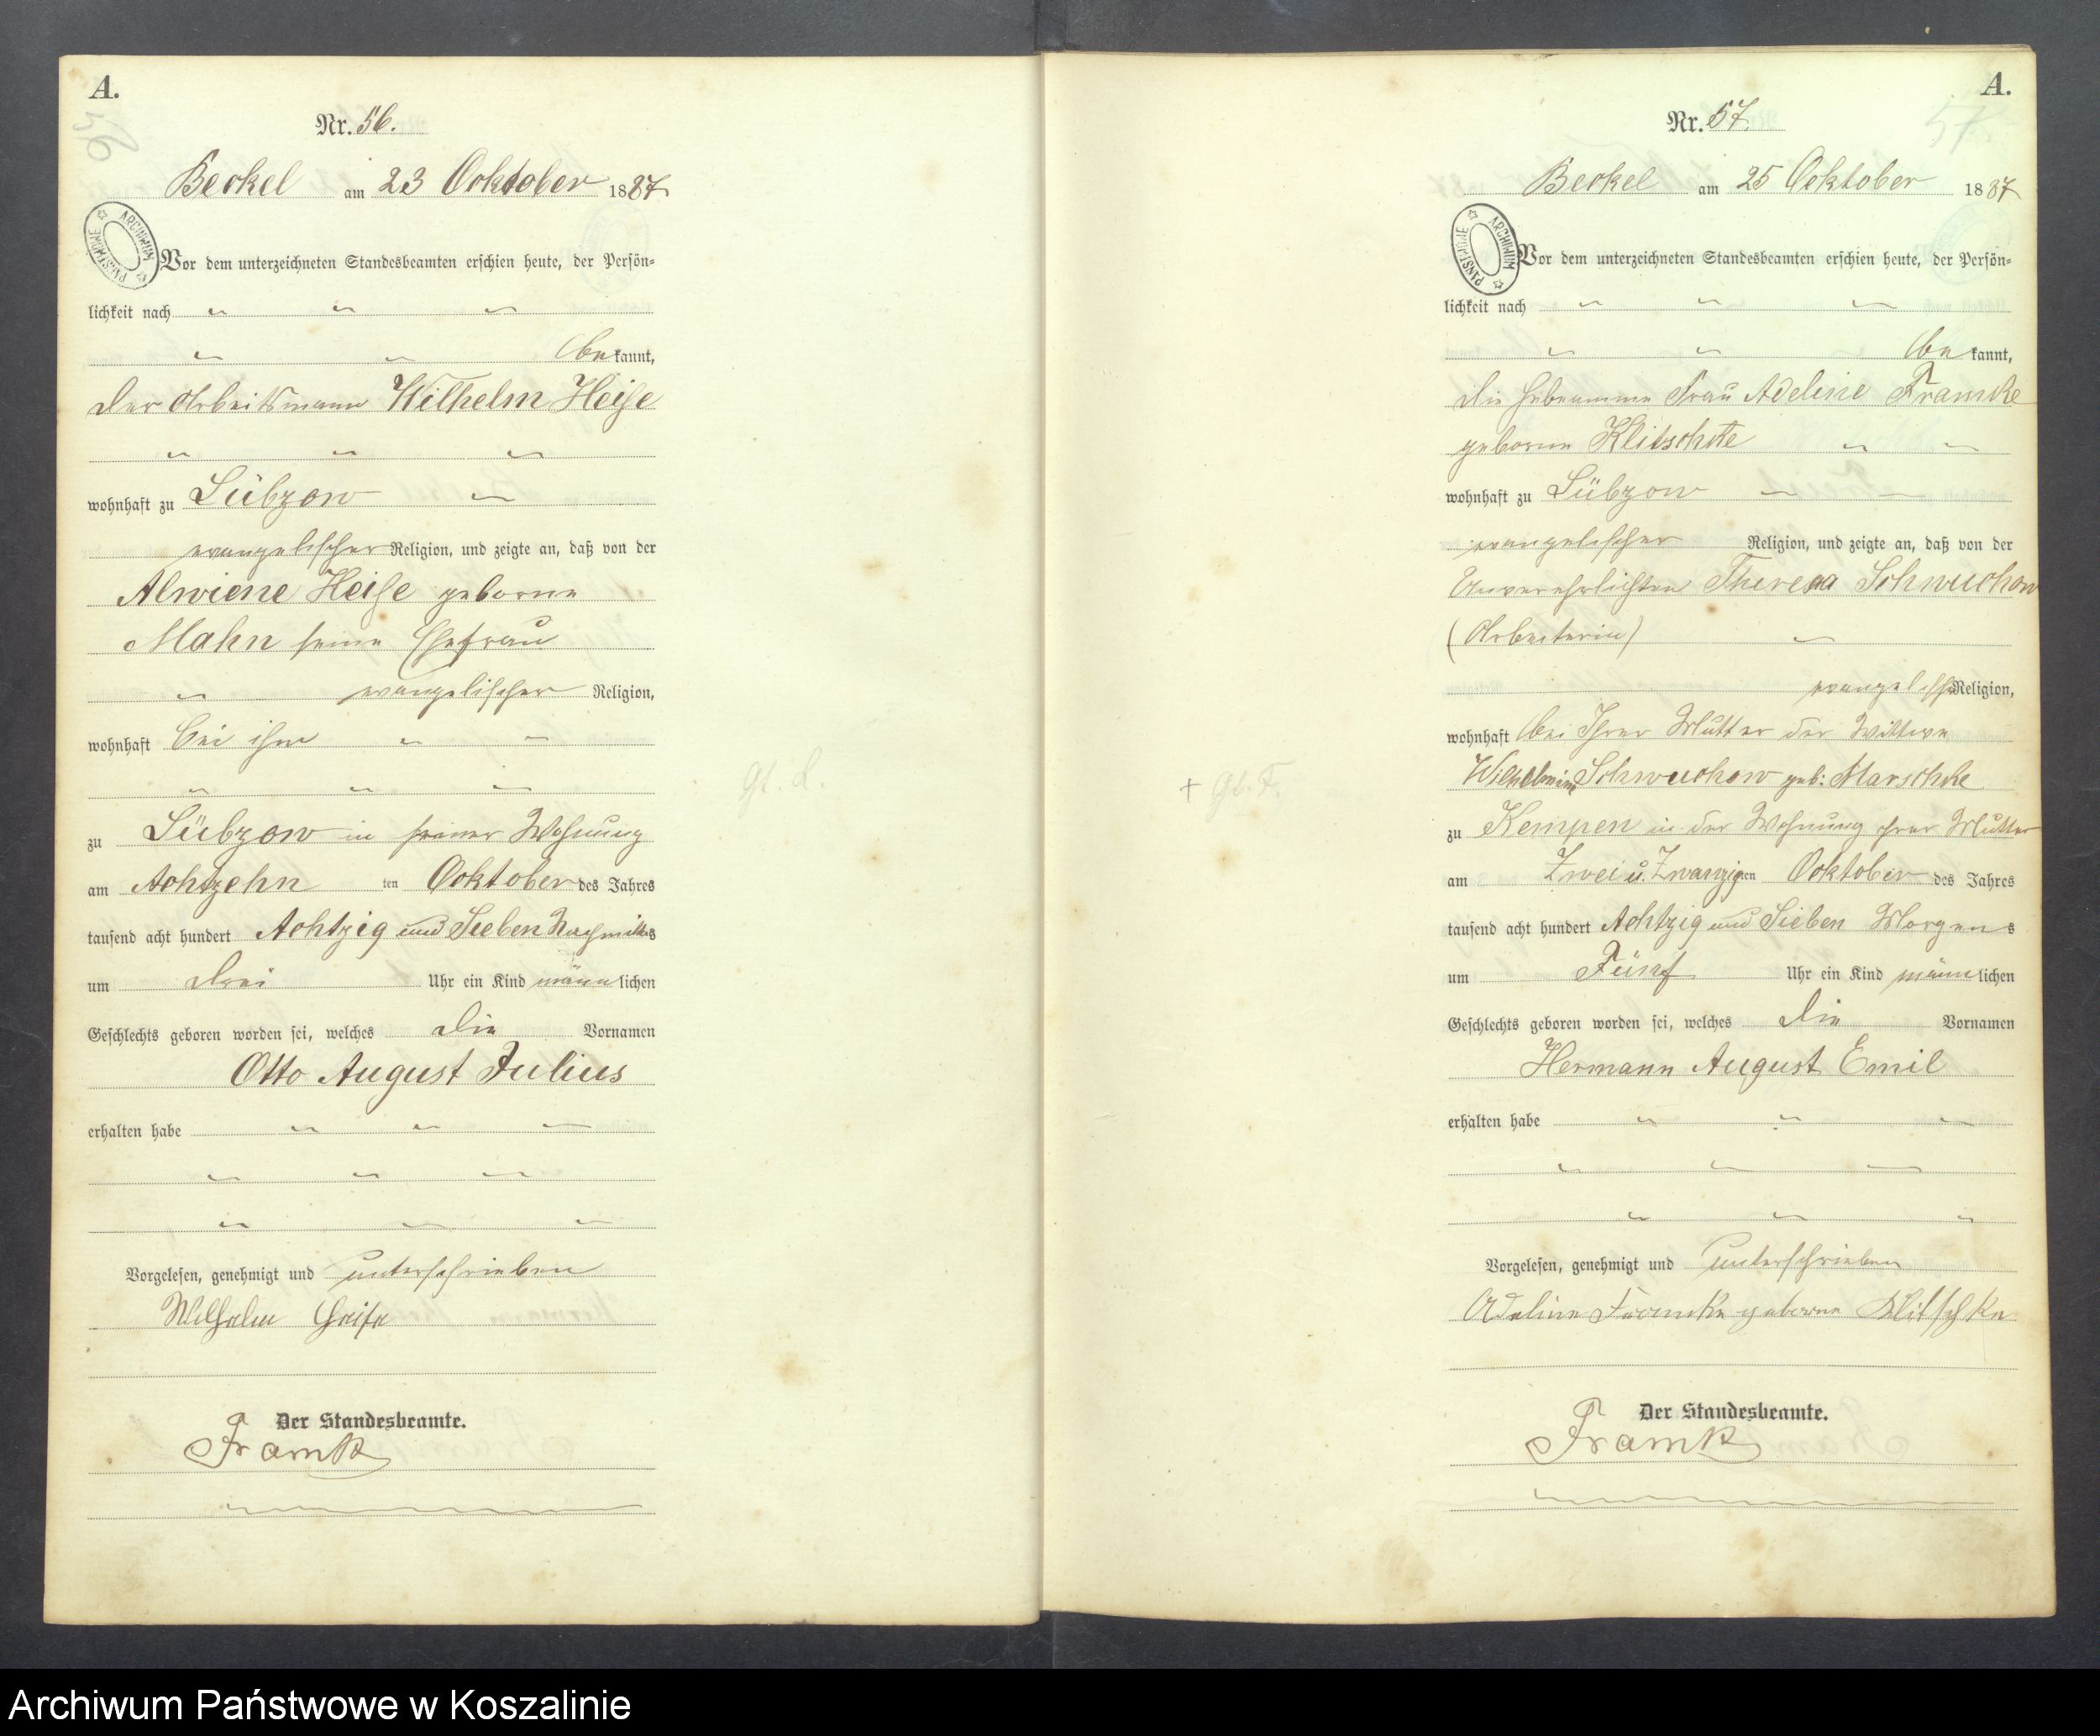 A.
56
Nr. 56.
Beckel am 23 Ocktober 1887
ARCHIWUM PAŃSTWOWE
Vor dem unterzeichneten Standesbeamten erschien heute, der Persön-
lichkeit nach
bekannt,
der Arbeitsmann Wilhelm Heise
wohnhaft zu Lübzow
evangelischer Religion, und zeigte an, daß von der
Alwiene Heise geborne
Mahn seine Ehefrau
evangelischer Religion,
wohnhaft bei ihm
zu Lübzow in seiner Wohnung
am Achtzehn ten Ocktober des Jahres
tausend acht hundert Achtzig und Sieben Nachmittags
um drei Uhr ein Kind männlichen
Geschlechts geboren worden sei, welches die Vornamen
Otto August Julius
erhalten habe
Vorgelesen, genehmigt und unterschrieben
Wilhelm Heise
Der Standesbeamte.
Framk
Gl. L.
A.
57.
Nr. 57.
Beckel am 25 Ocktober 1887
ARCHIWUM PAŃSTWOWE
Vor dem unterzeichneten Standesbeamten erschien heute, der Persön-
lichkeit nach
bekannt,
die Hebeamme Frau Adeline Framke
geborne Klitschke
wohnhaft zu Lübzow
evangelischer Religion, und zeigte an, daß von der
Unverehelichten Theresa Schwuchow
(Arbeiterin)
evangelischer Religion,
wohnhaft bei Ihrer Mutter der Wittwe
Wilhelmine Schwuchow geb: Marschke
zu Kempen in der Wohnung ihrer Mutter
am Zwei u. Zwanzigten Ocktober des Jahres
tausend acht hundert Achtzig und Sieben Morgens
um Fünf Uhr ein Kind männlichen
Geschlechts geboren worden sei, welches die Vornamen
Hermann August Emil
erhalten habe
Vorgelesen, genehmigt und unterschrieben
Adeline Framke geborne Klitschke
Der Standesbeamte.
Framk
+ Gl. F.
Archiwum Państwowe w Koszalinie